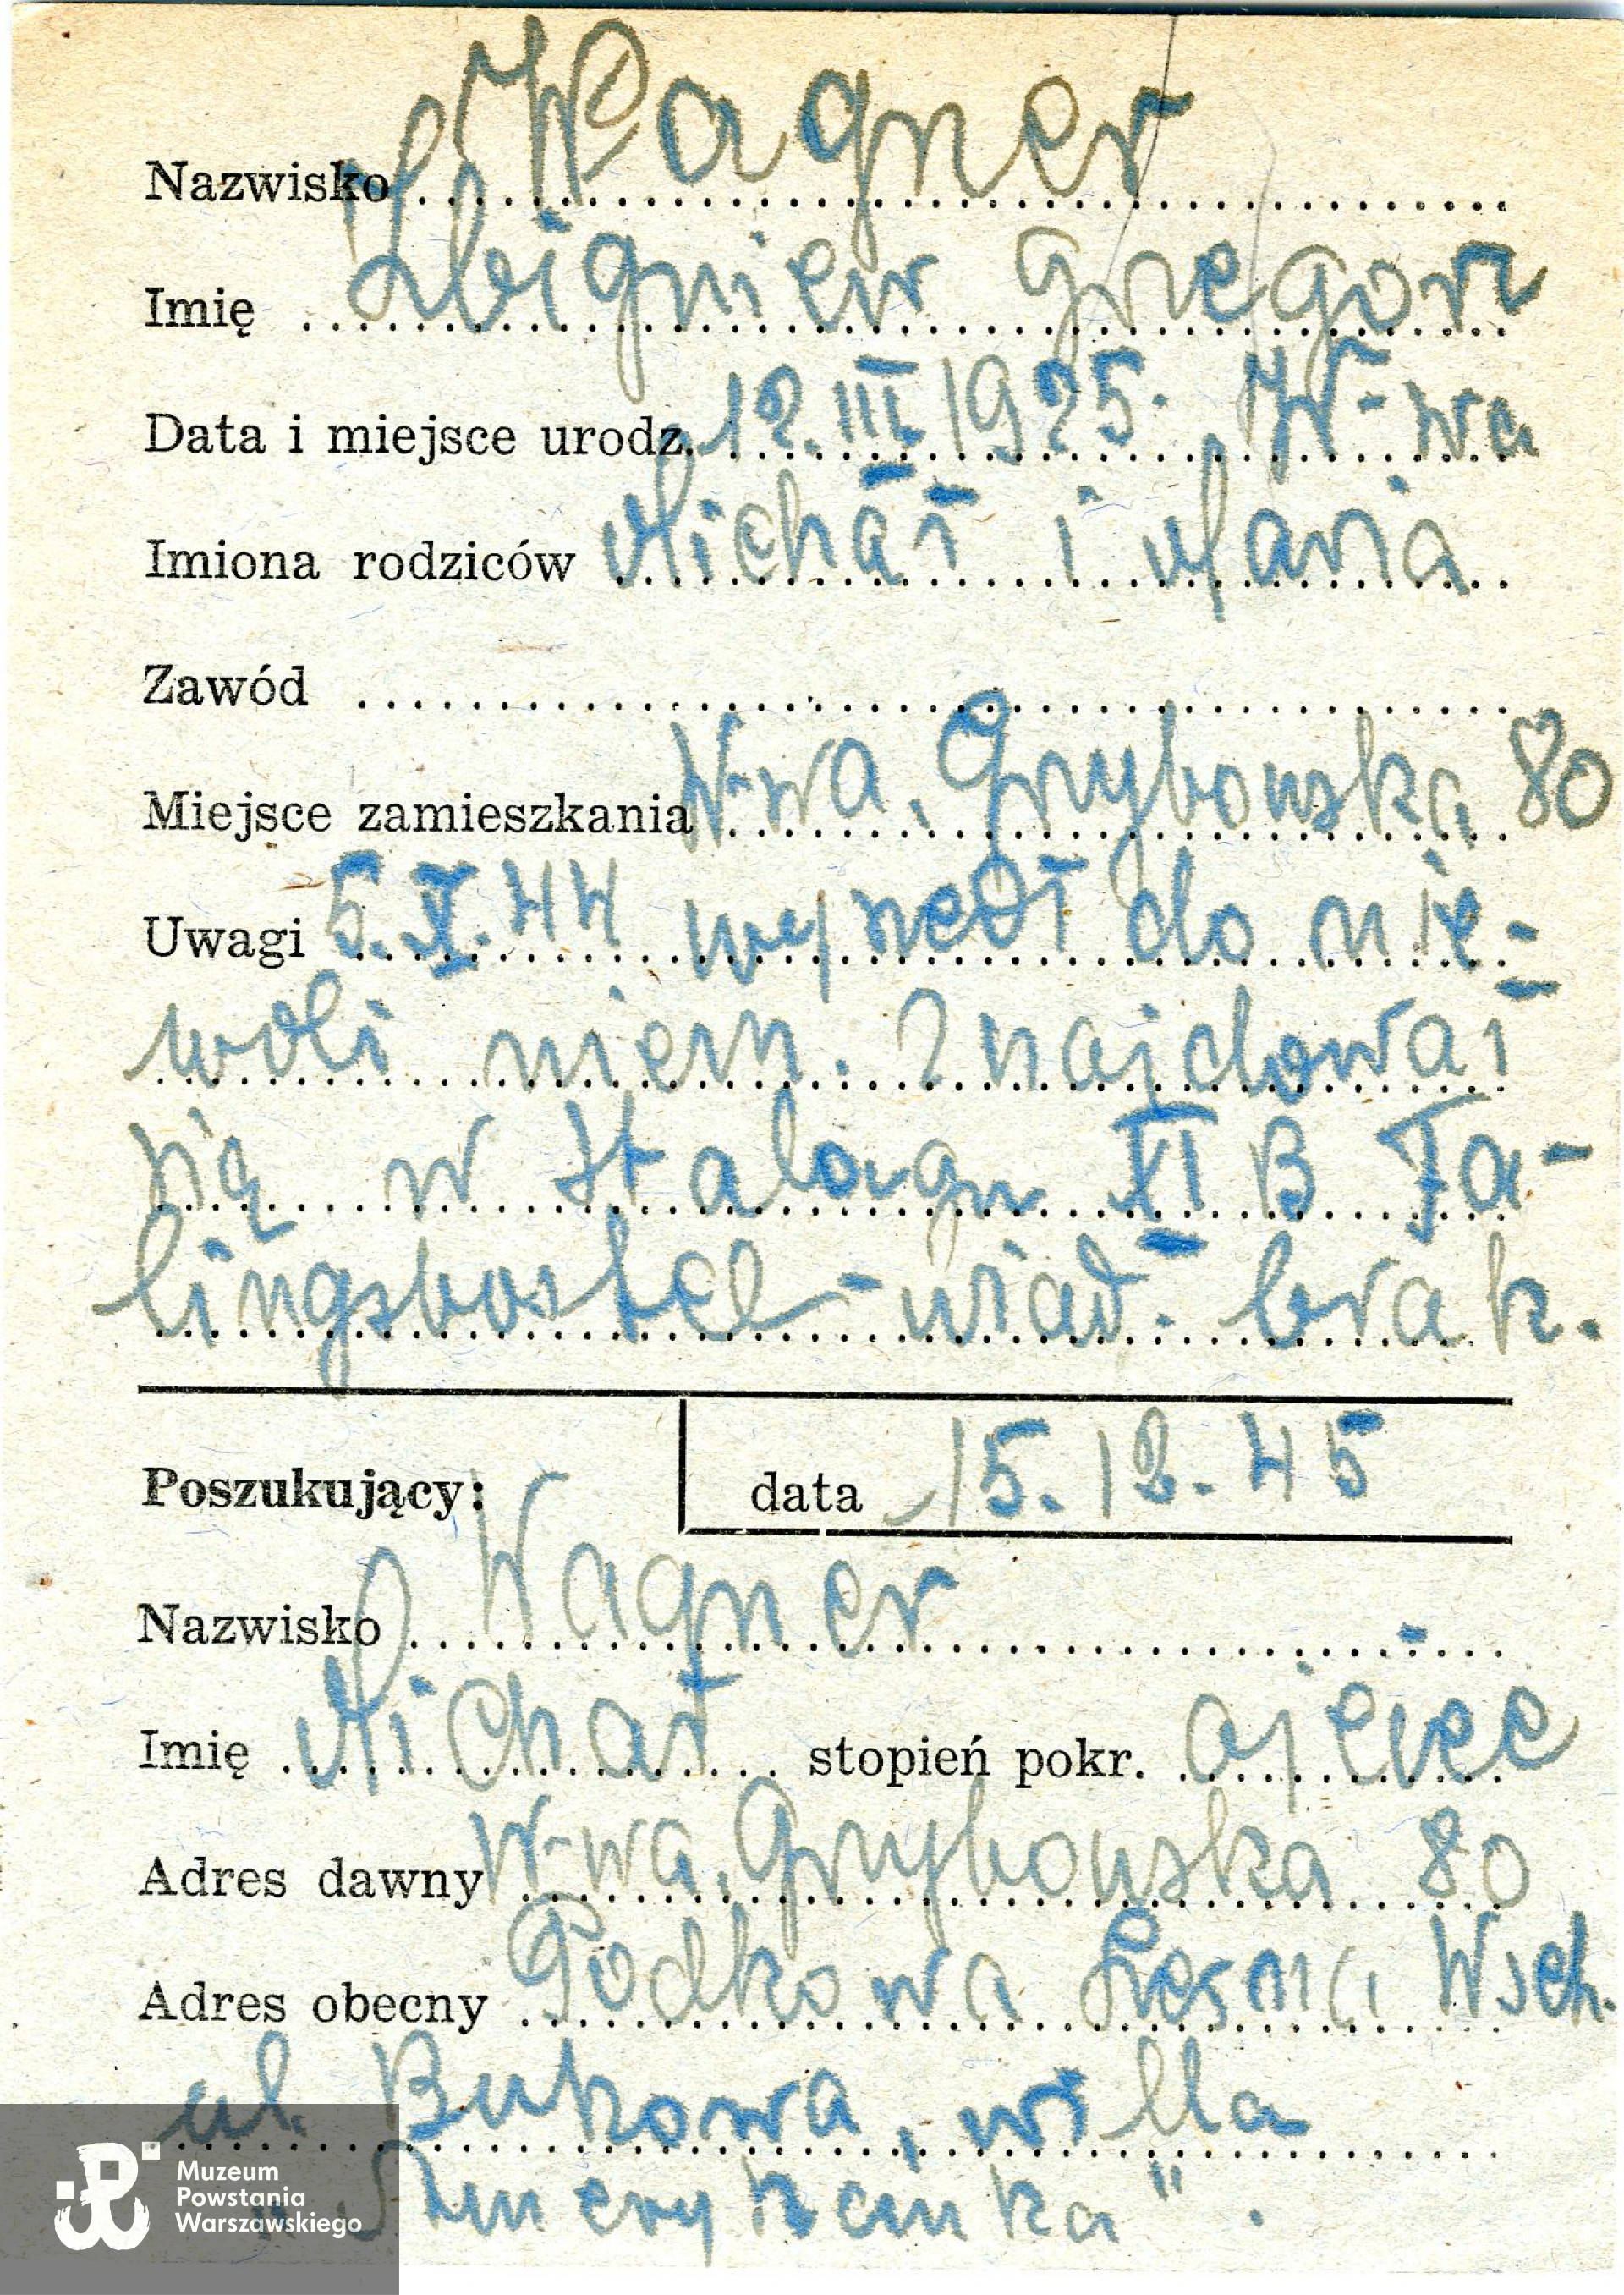 Nazwisko Wagner
Imię Zbigniew Grzegorz
Data i miejsce urodz. 12.III 1925. W-wa
Imiona rodziców Michał i Maria
Zawód
Miejsce zamieszkania W-wa, Grzybowska 80
Uwagi 5.X.44 wyszedł do nie-
woli niem. Znajdował
się w Stalagu XI B Fa-
lingsbostel - wiad. brak.
Poszukujący: data 15.12.45
Nazwisko Wagner
Imię Michał stopień pokr. ojciec
Adres dawny W-wa, Grzybowska 80
Adres obecny Podkowa Leśna Wsch.
ul. Bukowa, willa
„Amerykanka".
Muzeum
Powstania
Warszawskiego